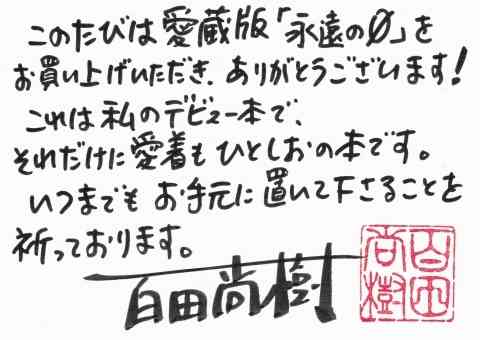 このたびは愛蔵版「永遠の0」を
お買い上げいただき、ありがとうございます!
これは私のデビュー本で、
それだけに愛着もひとしおの本です。
いつまでもお手元に置いて下さることを
祈っております。
百田尚樹
百田
尚樹